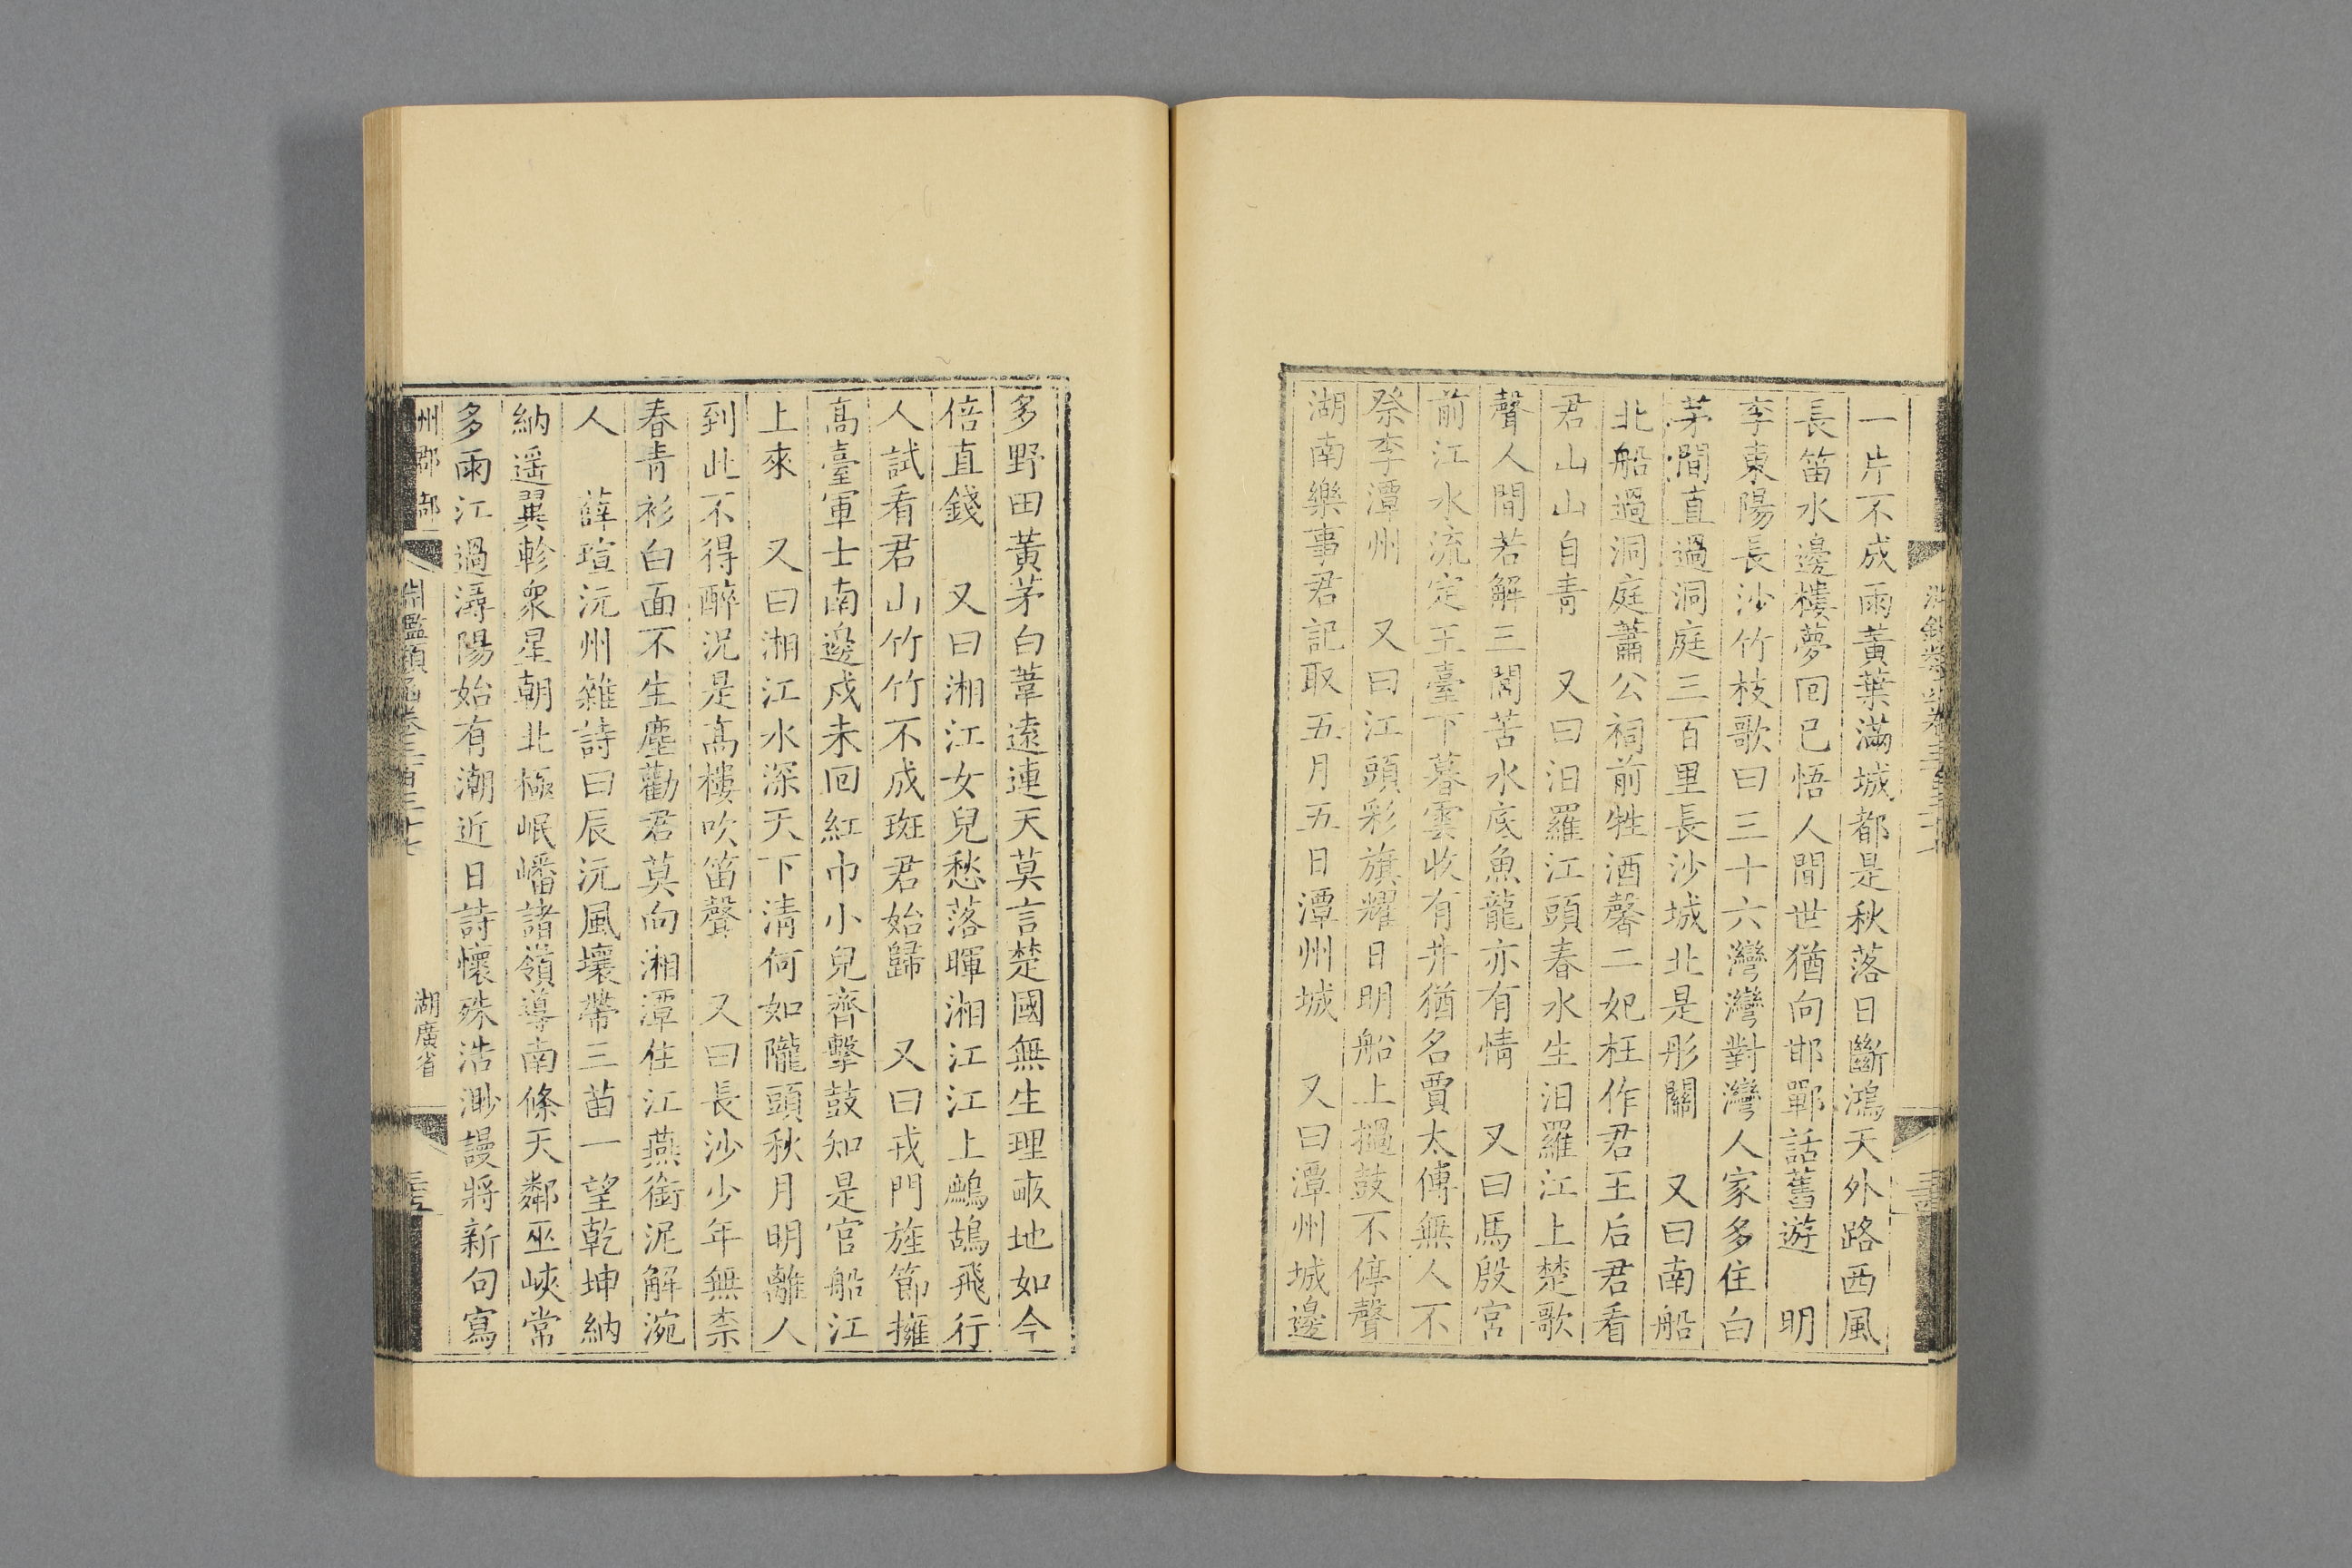 一片不成雨黃葉滿城都是秋落日斷鴻天外路西風
長笛水邊樓夢囘已悟人間世猶向邯鄲話舊遊 明
李東陽長沙竹枝歌曰三十六灣灣對灣人家多住白
茅間直過洞庭三百里長沙城北是彤關 又曰南船
北船過洞庭蕭公祠前牲酒馨二妃枉作君王后君看
君山山自青 又曰汨羅江頭春水生汨羅江上楚歌
聲人間若解三閭苦水底魚龍亦有情 又曰馬殷宮
前江水流定王臺下暮雲收有井猶名賈太傅無人不
祭李潭州 又曰江頭彩旗耀日明船上撾鼓不停聲
湖南樂事君記取五月五日潭州城 又曰潭州城邊
多野田黃茅白葦遠連天莫言楚國無生理畝地如今
倍直錢 又曰湘江女兒愁落暉湘江江上鷓鴣飛行
人試看君山竹竹不成斑君始歸 又曰戎門旌節擁
高臺軍士南邊戍未囘紅巾小兒齊擊鼓知是官船江
上來 又曰湘江水深天下清何如隴頭秋月明離人
到此不得醉況是高樓吹笛聲 又曰長沙少年無柰
春青衫白面不生塵勸君莫向湘潭住江燕銜泥解涴
人 薛瑄沅州雜詩曰辰沅風壤帶三苗一望乾坤納
納遥翼軫衆星朝北極岷嶓諸嶺導南條天鄰巫峽常
多雨江過潯陽始有潮近日詩懷殊浩渺謾將新句寫
州郡部 淵鑑類函卷三百三十七 湖廣省